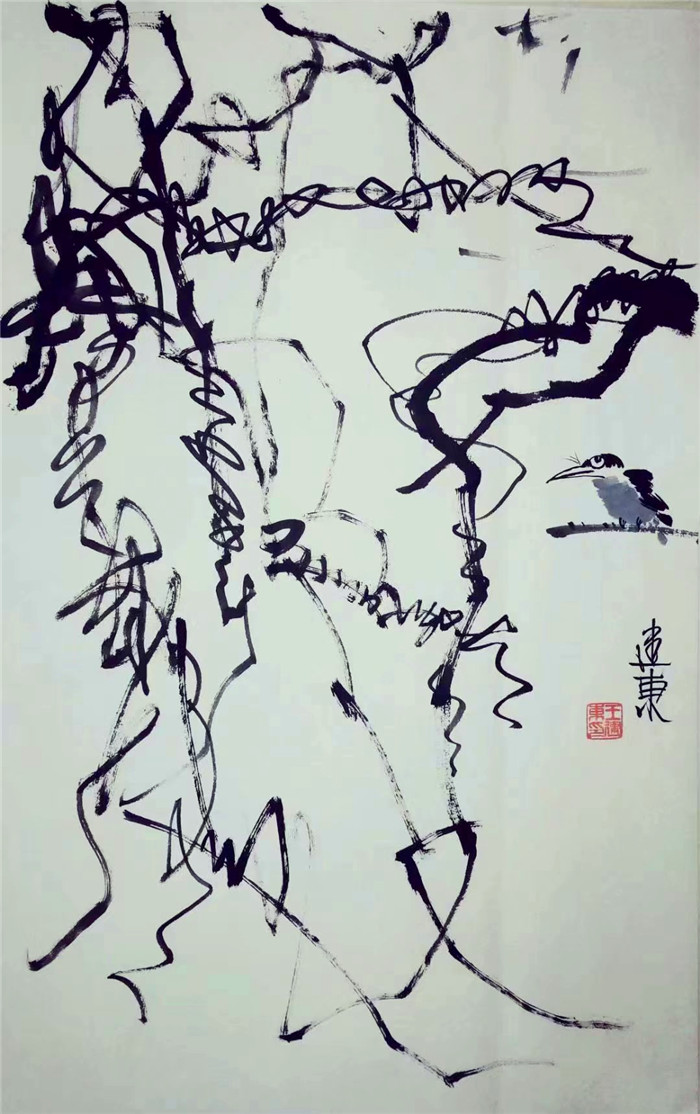 建東
王建
東印